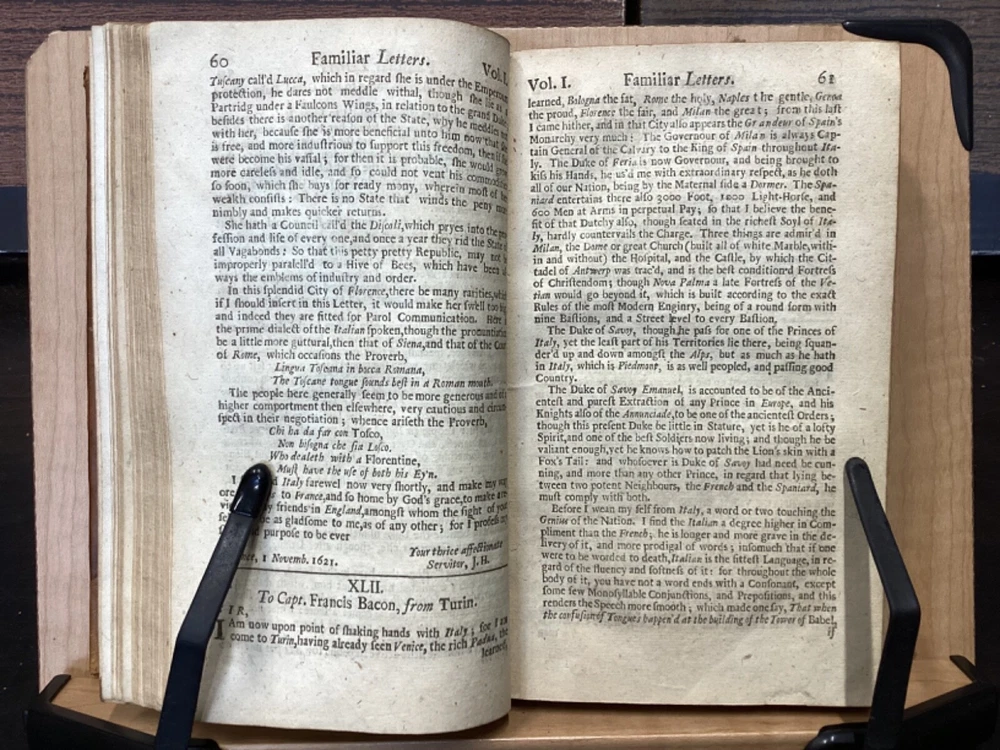 60 Familiar Letters. Vol. I.
Tuscany call'd Lucca, which in regard ſhe is under the Emperours
protection, he dares not meddle withal, though ſhe lie as a
Partridg under a Faulcons Wings, in relation to the grand Duke;
beſides there is another reaſon of the State, why he meddles not
with her, becauſe ſhe is more beneficial unto him now that ſhe
is free, and more induſtrious to ſupport this freedom, then if ſhe
were become his vaſſal; for then it is probable, ſhe would grow
more careleſs and idle, and ſo could not vent his commodities
ſo ſoon, which ſhe buys for ready mony, wherein moſt of her
wealth conſiſts: There is no State that winds the peny more
nimbly and makes quicker returns.
She hath a Council call'd the Diſcoli, which pryes into the pro-
feſſion and life of every one, and once a year they rid the State of
all Vagabonds: So that this petty pretty Republic, may not be
improperly paralell'd to a Hive of Bees, which have been al-
ways the emblems of induſtry and order.
In this ſplendid City of Florence, there be many rarities, which
if I ſhould inſert in this Letter, it would make her ſwell too big
and indeed they are fitted for Parol Communication. Here is
the prime dialect of the Italian ſpoken, though the pronuntiation
be a little more guttural, then that of Siena, and that of the Court
of Rome, which occaſions the Proverb,
Lingua Toſcana in bocca Romana,
The Toſcane tongue ſounds beſt in a Roman mouth.
The people here generally ſeem to be more generous and of
higher comportment then elſewhere, very cautious and circum-
ſpect in their negotiation; whence ariſeth the Proverb,
Chi ha da far con Toſco,
Non biſogna che ſia Loſco.
Who dealeth with a Florentine,
Muſt have the uſe of both his Ey'n.
I Italy farewel now very ſhortly, and make my
to France, and ſo home by God's grace, to make a
friends in England, amongſt whom the ſight of your
as gladſome to me, as of any other; for I profeſs my
purpoſe to be ever
Your thrice affectionate
Servitor, J. H.
1 Novemb. 1621.
XLII.
To Capt. Francis Bacon, from Turin.
I R,
I Am now upon point of ſhaking hands with Italy; for I am
come to Turin, having already ſeen Venice, the rich Padua, the
learned,
Vol. I. Familiar Letters. 61
learned, Bologna the fat, Rome the holy, Naples the gentle, Genoa
the proud, Florence the fair, and Milan the great; from this laſt
I came hither, and in that City alſo appears the Grandeur of Spain's
Monarchy very much: The Governour of Milan is always Cap-
tain General of the Calvary to the King of Spain throughout Ita-
ly. The Duke of Feria is now Governour, and being brought to
kiſs his Hands, he us'd me with extraordinary reſpect, as he doth
all of our Nation, being by the Maternal ſide a Dormer. The Spa-
niard entertains there alſo 3000 Foot, 1000 Light-Horſe, and
600 Men at Arms in perpetual Pay; ſo that I believe the bene-
fit of that Dutchy alſo, though ſeated in the richeſt Soyl of Ita-
ly, hardly countervails the Charge. Three things are admir'd in
Milan, the Dome or great Church (built all of white Marble, with-
in and without) the Hoſpital, and the Caſtle, by which the Cit-
tadel of Antwerp was trac'd, and is the beſt condition'd Fortreſs
of Chriſtendom; though Nova Palma a late Fortreſs of the Ve-
tian would go beyond it, which is built according to the exact
Rules of the moſt Modern Enginry, being of a round form with
nine Baſtions, and a Street level to every Baſtion.
The Duke of Savoy, though he paſs for one of the Princes of
Italy, yet the leaſt part of his Territories lie there, being ſquan-
der'd up and down amongſt the Alps, but as much as he hath
in Italy, which is Piedmont, is as well peopled, and paſſing good
Country.
The Duke of Savoy Emanuel, is accounted to be of the Anci-
enteſt and pureſt Extraction of any Prince in Europe, and his
Knights alſo of the Annunciade, to be one of the ancienteſt Orders;
though this preſent Duke be little in Stature, yet is he of a lofty
Spirit, and one of the beſt Soldiers now living; and though he be
valiant enough, yet he knows how to patch the Lion's skin with a
Fox's Tail: and whoſoever is Duke of Savoy had need be cun-
ning, and more than any other Prince, in regard that lying be-
tween two potent Neighbours, the French and the Spaniard, he
muſt comply with both.
Before I wean my ſelf from Italy, a word or two touching the
Genius of the Nation. I find the Italian a degree higher in Com-
pliment than the French; he is longer and more grave in the de-
livery of it, and more prodigal of words; inſomuch that if one
were to be worded to death, Italian is the fitteſt Language, in re-
gard of the fluency and ſoftneſs of it: for throughout the whole
body of it, you have not a word ends with a Conſonant, except
ſome few Monoſyllable Conjunctions, and Prepoſitions, and this
renders the Speech more ſmooth; which made one ſay, That when
the confuſion of Tongues happen'd at the building of the Tower of Babel,
if